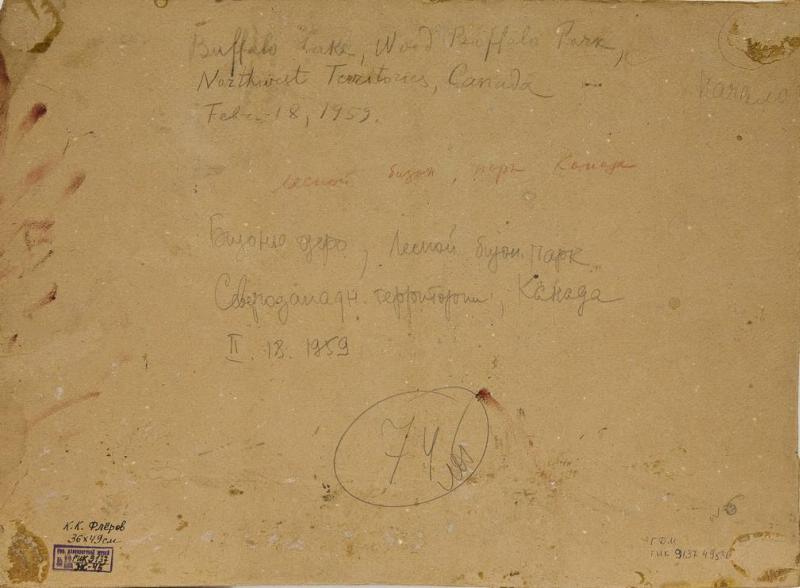 Buffalo Lake, Wood Buffalo Park,
Northwest Territories, Canada
Febr. 18, 1959.
лесной бизон, парк Канада
Бизонье озеро, Лесной бизон. парк
Северозападн. территории, Канада
II. 18. 1959
74
К.К. Флёров
36х49см
ГДМ
ГИК 9137